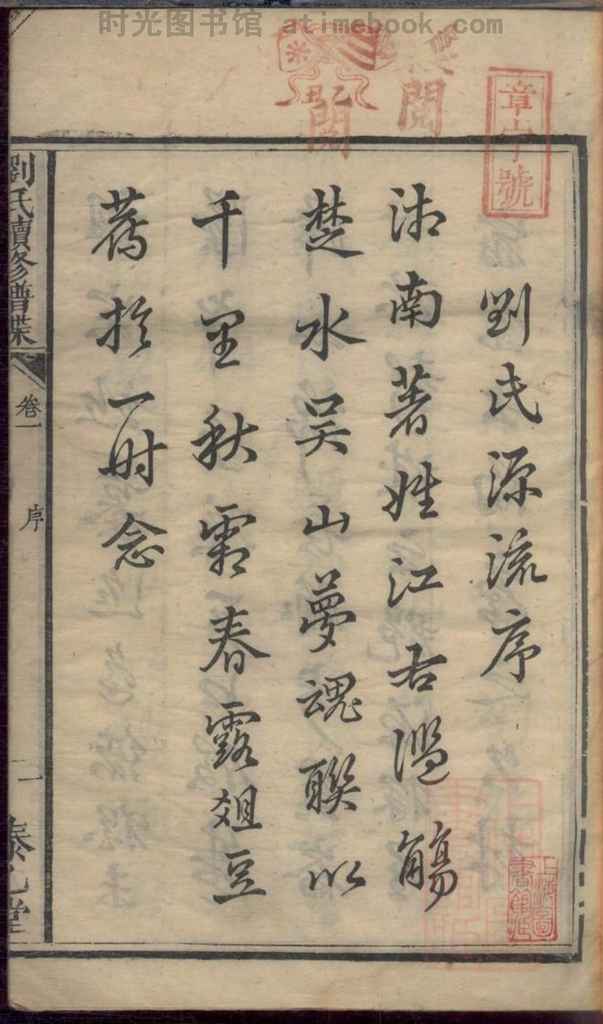 时光图书馆 atimebook.com
章字號
劉氏源流序
沛南著姓江右濫觴
楚水吴山夢魂聯以
千里秋霜春露俎豆
薦於一时念
劉氏續修譜牒
卷一
序
一
閱
閱